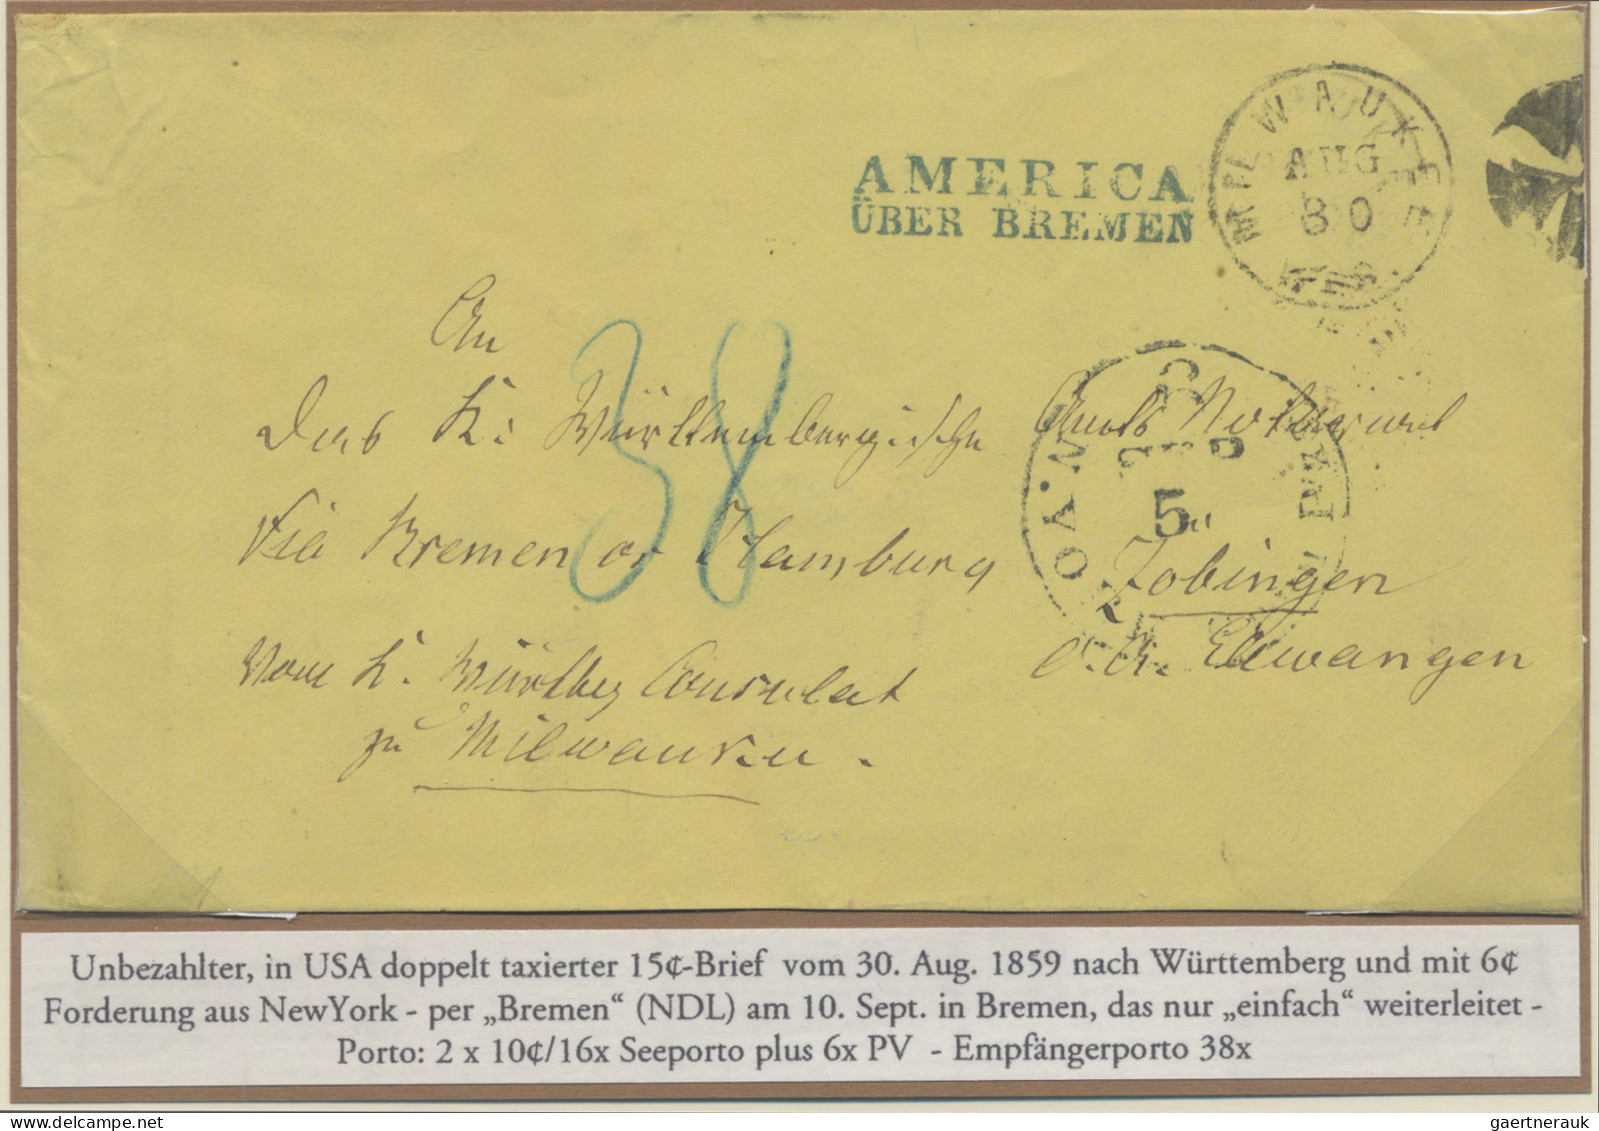 AMERICA
ÜBER BREMEN
MILWAUKEE
AUG
30
WIS.
An
das K. Württembergische Amts Notariat
38
N. YORK AM. PKT.
SEP
5
Via Bremen or Hamburg zu Zöbingen
O.A. Ellwangen
Vom K. Württbg Consulat
zu Milwaukee.
Unbezahlter, in USA doppelt taxierter 15¢-Brief vom 30. Aug. 1859 nach Württemberg und mit 6¢
Forderung aus NewYork - per „Bremen“ (NDL) am 10. Sept. in Bremen, das nur „einfach“ weiterleitet -
Porto: 2 x 10¢/16x Seeporto plus 6x PV - Empfängerporto 38x
gaertnerauk